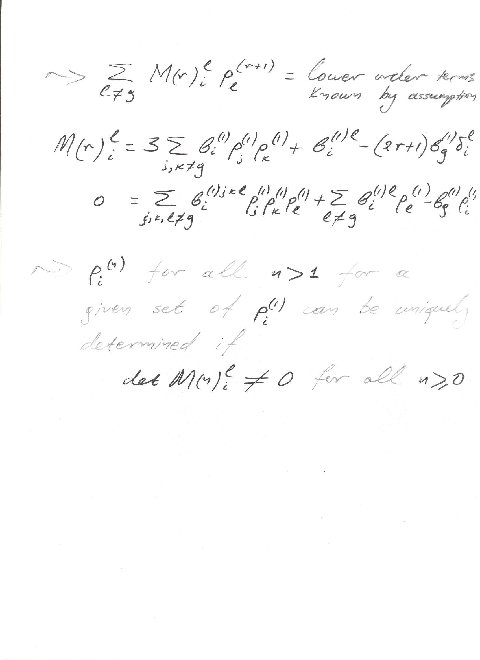 ~> Σ_{l≠g} M(r)_i^l ρ_l^{(r+1)} = lower order terms
known by assumption
M(r)_i^l = 3 Σ_{j,k≠g} β_i^{(1)} ρ_j^{(1)} ρ_k^{(1)} + β_i^{(1)l} - (2r+1) β_g^{(1)} δ_i^l
0 = Σ_{j,k,l≠g} β_i^{(1)jkl} ρ_j^{(1)} ρ_k^{(1)} ρ_l^{(1)} + Σ_{l≠g} β_i^{(1)l} ρ_l^{(1)} - β_g^{(1)} ρ_i^{(1)}
~> ρ_i^{(n)} for all n>1 for a
given set of ρ_i^{(1)} can be uniquely
determined if
det M(n)_i^l ≠ 0 for all n⩾0